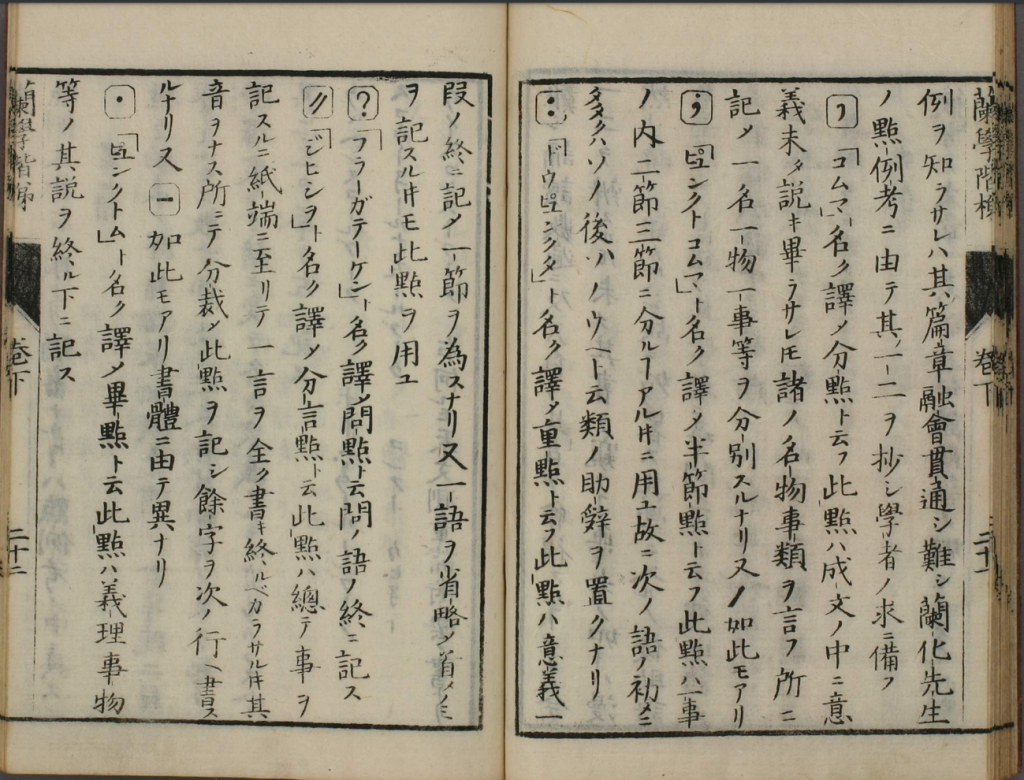 蘭學階梯 卷下 二十一
例ヲ知ラサレハ其篇章融會貫通シ難シ蘭化先生
ノ點例考ニ由テ其一二ヲ抄シ學者ノ求ニ備フ
，「コムマ」ト名ク譯メ分點ト云フ此點ハ成文ノ中ニ意
義未タ說キ畢ラサレ𪜈諸ノ名物事類ヲ言フ所ニ
記メ一名一物一事等ヲ分別スルナリ又/如此モアリ
；「ピュンクトコムマ」ト名ク譯メ半節點ト云フ此點ハ一事
ノ内二節三節ニ分ルヿアル𪜈ニ用ユ故ニ次ノ語ノ初メニ
多クハソノ後ハノウヘト云類ノ助辭ヲ置クナリ
：「ドウピュンクタ」ト名ク譯メ重點ト云フ此點ハ意義一
段ノ終ニ記メ一節ヲ為スナリ又一語ヲ省略メ首メノミ
ヲ記スル𪜈モ此點ヲ用ユ
？「フラーガテーケン」ト名ク譯メ問點ト云問ノ語ノ終ニ記ス
〃「ジヒシヲ」ト名ク譯メ分言點ト云此點ハ總テ事ヲ
記スルニ紙端ニ至リテ一言ヲ全ク書キ終ルベカラサル𪜈其
音ヲナス所ニテ分裁メ此點ヲ記シ餘字ヲ次ノ行ヘ書ス
ルナリ又－如此モアリ書體ニ由テ異ナリ
・「ピュンクトム」ト名ク譯メ畢點ト云此點ハ義理事物
等ノ其說ヲ終ル下ニ記ス
蘭學階梯 卷下 二十二